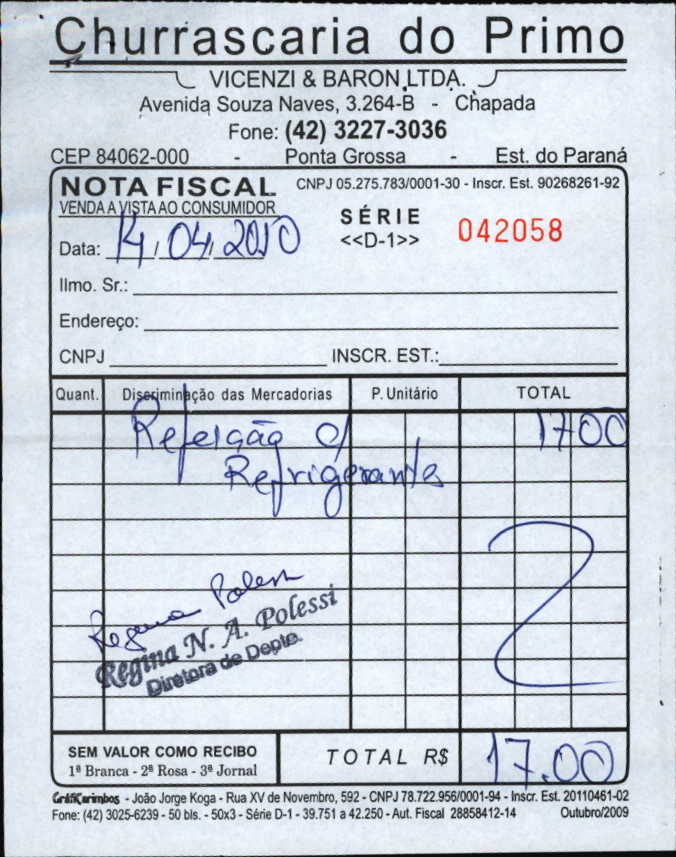 Churrascaria do Primo
VICENZI & BARON LTDA.
Avenida Souza Naves, 3.264-B - Chapada
Fone: (42) 3227-3036
CEP 84062-000 - Ponta Grossa - Est. do Paraná
NOTA FISCAL CNPJ 05.275.783/0001-30 - Inscr. Est. 90268261-92
VENDA A VISTA AO CONSUMIDOR
SÉRIE
<<D-1>> 042058
Data: 14, 04, 2010
Ilmo. Sr.:
Endereço:
CNPJ INSCR. EST.:
Quant. Discriminação das Mercadorias P. Unitário TOTAL
Refeição c/ 17 00
Refrigerantes
Regina Polessi
Regina N. A. Polessi
Diretora de Depto.
SEM VALOR COMO RECIBO TOTAL R$ 17.00
1ª Branca - 2ª Rosa - 3ª Jornal
GráfiCarimbos - João Jorge Koga - Rua XV de Novembro, 592 - CNPJ 78.722.956/0001-94 - Inscr. Est. 20110461-02
Fone: (42) 3025-6239 - 50 bls. - 50x3 - Série D-1 - 39.751 a 42.250 - Aut. Fiscal 28858412-14 Outubro/2009